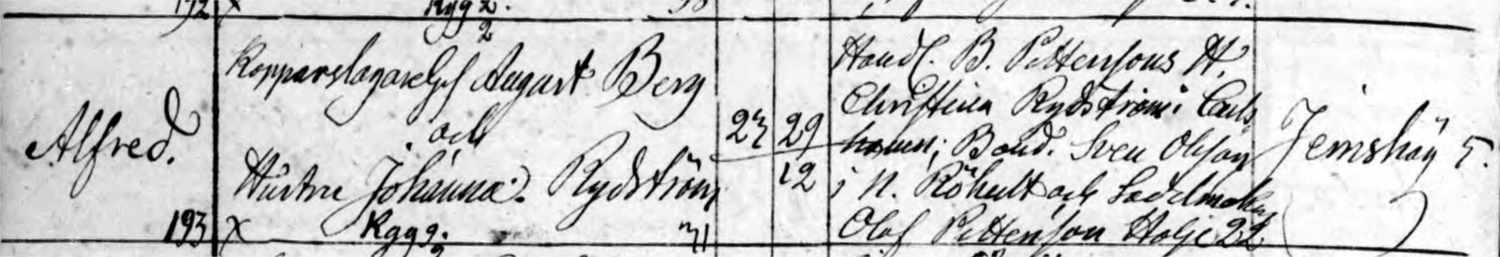 192 x Rygg 2.
Kopparslagareges August Berg
och
Hustru Johanna Rydström
Alfred.
193 x Rygg. 31
23 29
12
Handl. B. Pettersons H.
Christina Rydström i Carls
hamn; Bond. Sven Olsson
i N. Röhult och Sadelmak
Olof Pettersson Holje 22
Jemshög 5.